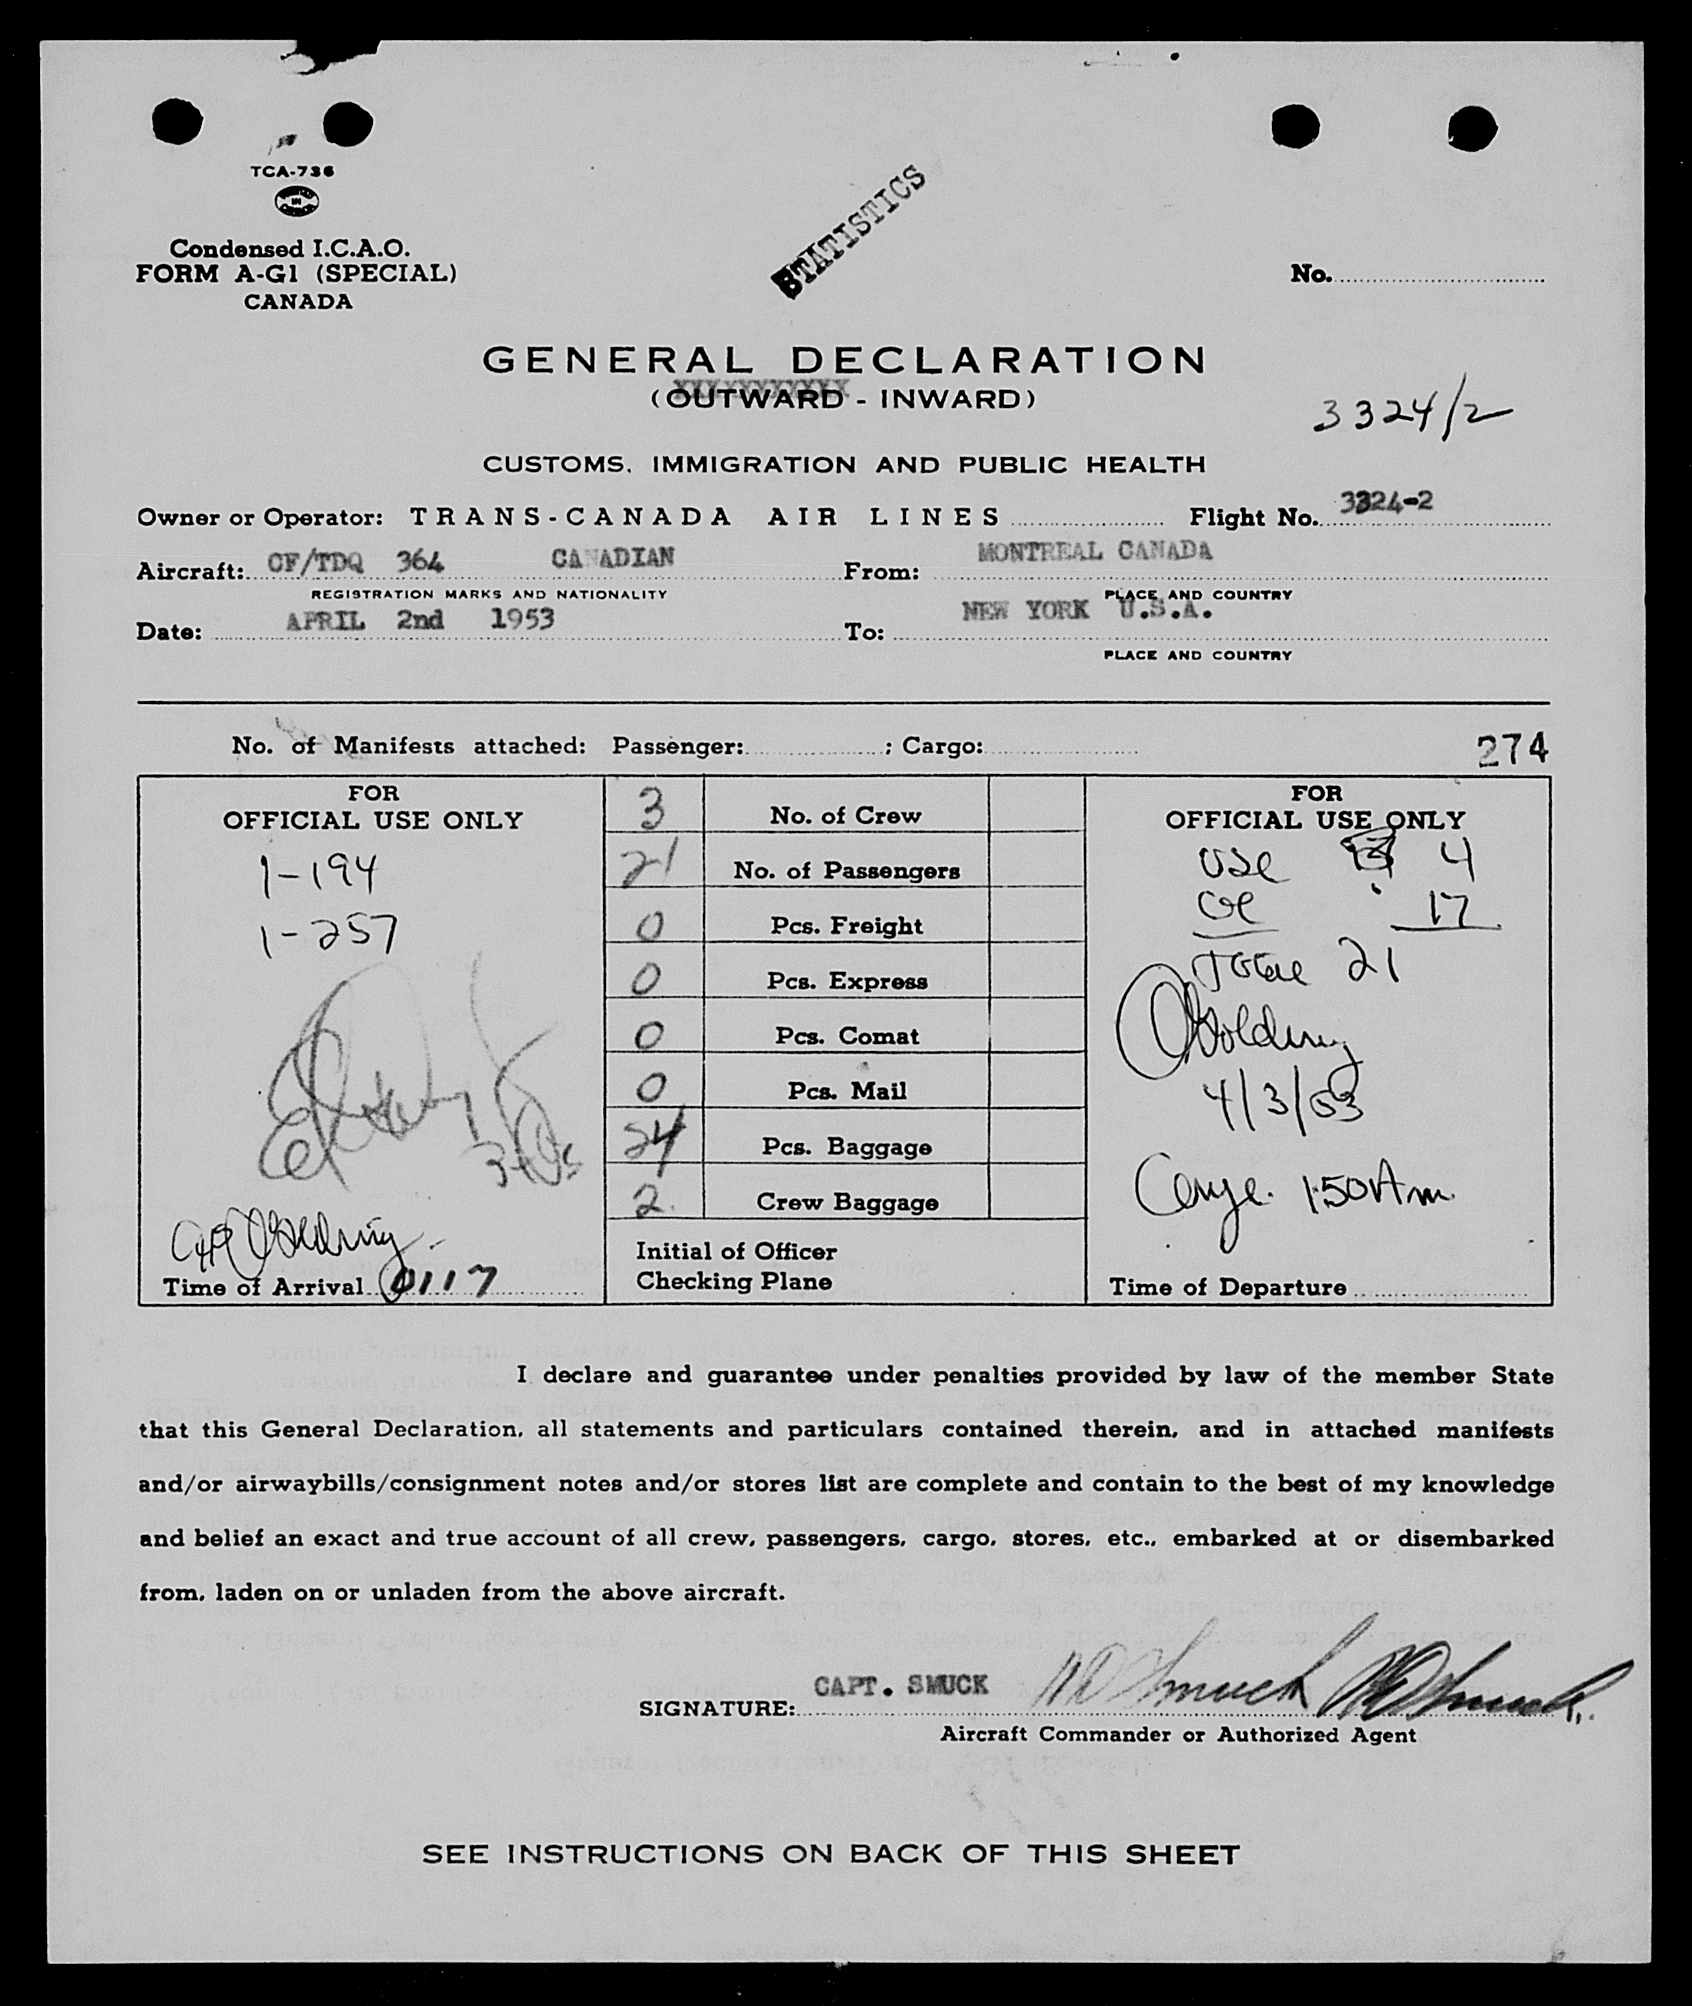 TCA-736
IN
Condensed I.C.A.O.
FORM A-G1 (SPECIAL)
CANADA
STATISTICS
No.
GENERAL DECLARATION
XXXXXXXXXXX
(OUTWARD - INWARD)
3324/2
CUSTOMS, IMMIGRATION AND PUBLIC HEALTH
Owner or Operator: TRANS-CANADA AIR LINES Flight No. 3324-2
Aircraft: CF/TDQ 364 CANADIAN From: MONTREAL CANADA
REGISTRATION MARKS AND NATIONALITY PLACE AND COUNTRY
Date: APRIL 2nd 1953 To: NEW YORK U.S.A.
PLACE AND COUNTRY
No. of Manifests attached: Passenger: ; Cargo: 274
FOR
OFFICIAL USE ONLY
1-194
1-257
Time of Arrival 0117
3 No. of Crew
21 No. of Passengers
0 Pcs. Freight
0 Pcs. Express
0 Pcs. Comat
0 Pcs. Mail
24 Pcs. Baggage
2. Crew Baggage
Initial of Officer
Checking Plane
FOR
OFFICIAL USE ONLY
USC 4
17
Total 21
Golding
4/3/53
1:50 Am.
Time of Departure
I declare and guarantee under penalties provided by law of the member State
that this General Declaration, all statements and particulars contained therein, and in attached manifests
and/or airwaybills/consignment notes and/or stores list are complete and contain to the best of my knowledge
and belief an exact and true account of all crew, passengers, cargo, stores, etc., embarked at or disembarked
from, laden on or unladen from the above aircraft.
SIGNATURE: CAPT. SMUCK WD Smuck WD Smuck
Aircraft Commander or Authorized Agent
SEE INSTRUCTIONS ON BACK OF THIS SHEET